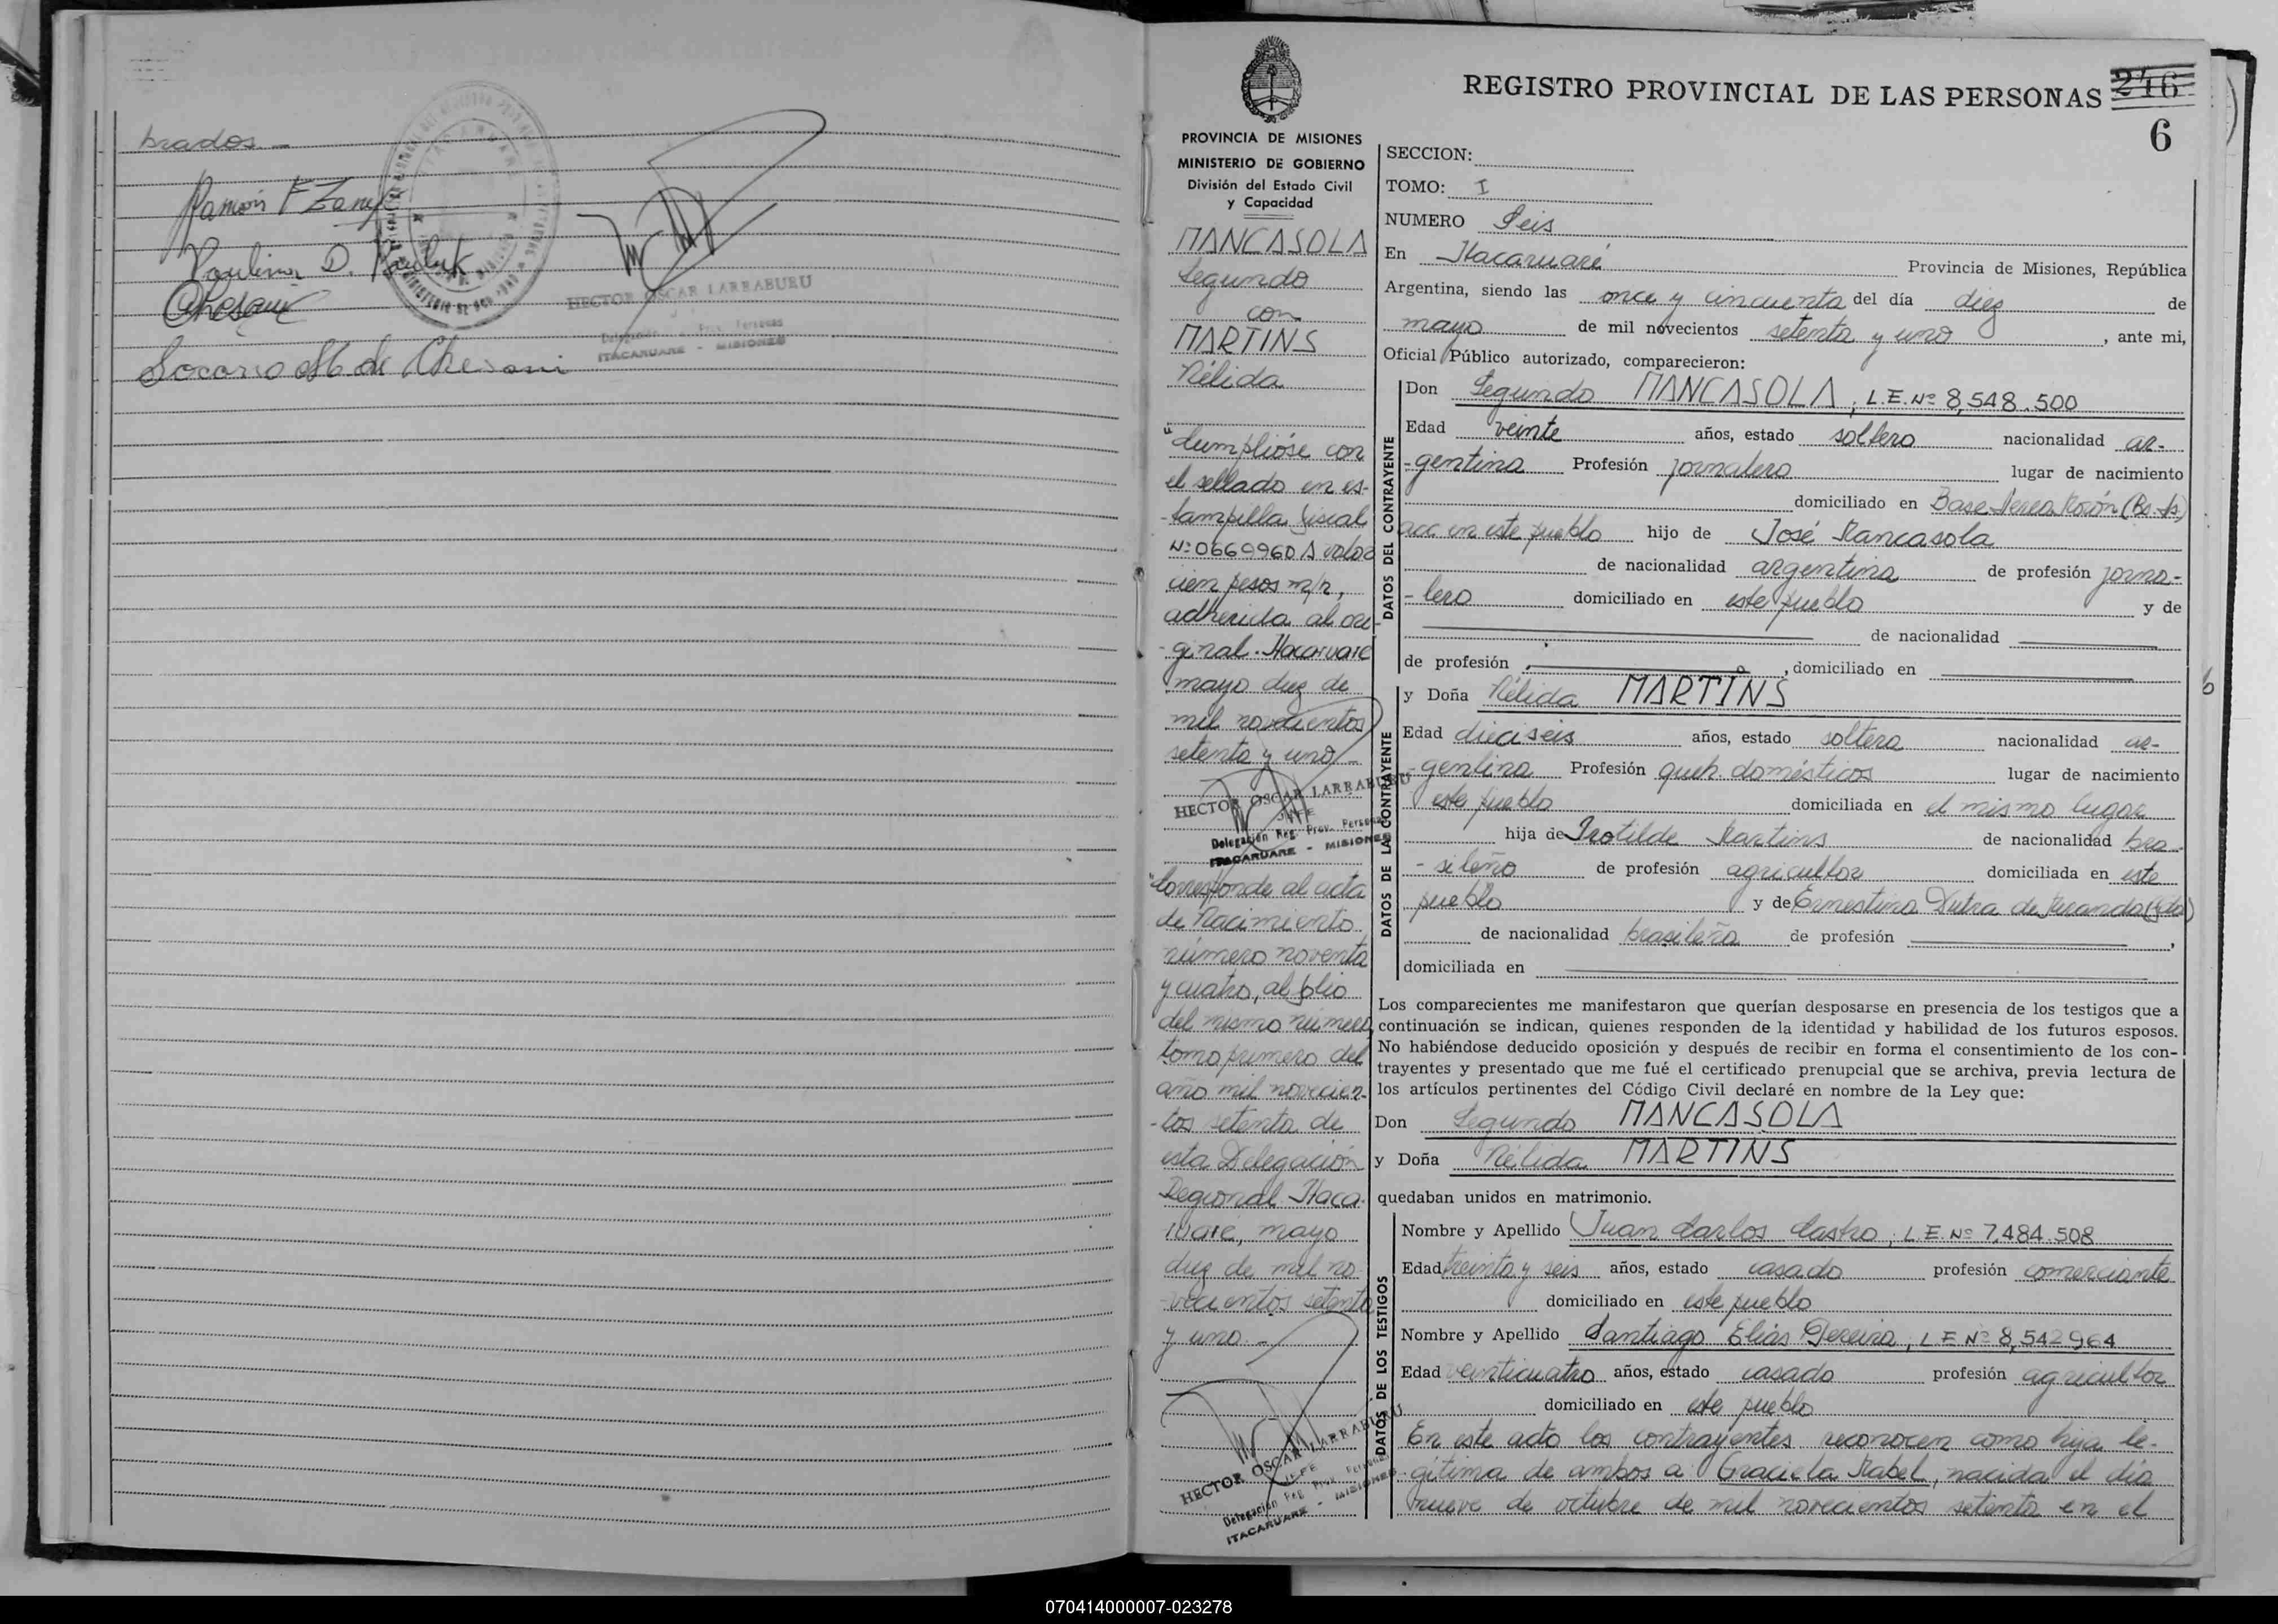 brados.-
Ramón F Zany
Paulina D. Pauluk
Chesani
HECTOR OSCAR LARRABURU
Delegación Reg. Prov. Personas
ITACARUARE - MISIONES
Socorro M. de Chesani
REGISTRO PROVINCIAL DE LAS PERSONAS 246
6
PROVINCIA DE MISIONES
MINISTERIO DE GOBIERNO
División del Estado Civil
y Capacidad
MANCASOLA
Segundo
con
MARTINS
Nélida
"Cumplióse con
el sellado en es-
-tampilla fiscal
Nº 0669960 A valor
cien pesos m/n,
adherida al ori-
-ginal. Itacaruaré
mayo diez de
mil novecientos
setenta y uno.-
HECTOR OSCAR LARRABURU
JEFE
Delegación Reg. Prov. Personas
ITACARUARE - MISIONES
"Corresponde al acta
de Nacimiento
número noventa
y cuatro, al folio
del mismo número
tomo primero del
año mil novecien-
-tos setenta de
esta Delegación
Regional Itaca-
ruaré, mayo
diez de mil no-
-vecientos setenta
y uno.-
HECTOR OSCAR LARRABURU
JEFE
Delegación Reg. Prov. Personas
ITACARUARE - MISIONES
SECCION:
TOMO: I
NUMERO Seis
En Itacaruaré Provincia de Misiones, República
Argentina, siendo las once y cincuenta del día diez de
mayo de mil novecientos setenta y uno, ante mi,
Oficial Público autorizado, comparecieron:
DATOS DEL CONTRAYENTE
Don Segundo MANCASOLA, L.E. Nº 8,548.500
Edad veinte años, estado soltero nacionalidad ar-
-gentina Profesión jornalero lugar de nacimiento
domiciliado en Base Aerea Morón (Bs. As.)
acc. en este pueblo hijo de José Mancasola
de nacionalidad argentina de profesión jorna-
-lero domiciliado en este pueblo y de
de nacionalidad
de profesión , domiciliado en
DATOS DE LA CONTRAYENTE
y Doña Nélida MARTINS
Edad dieciseis años, estado soltera nacionalidad ar-
-gentina Profesión queh. domésticos lugar de nacimiento
este pueblo domiciliada en el mismo lugar
hija de Trotilde Martins de nacionalidad bra-
-sileño de profesión agricultor domiciliada en este
pueblo y de Ernestina Dutra de Miranda
de nacionalidad brasileña de profesión ,
domiciliada en
Los comparecientes me manifestaron que querían desposarse en presencia de los testigos que a
continuación se indican, quienes responden de la identidad y habilidad de los futuros esposos.
No habiéndose deducido oposición y después de recibir en forma el consentimiento de los con-
trayentes y presentado que me fué el certificado prenupcial que se archiva, previa lectura de
los artículos pertinentes del Código Civil declaré en nombre de la Ley que:
Don Segundo MANCASOLA
y Doña Nélida MARTINS
quedaban unidos en matrimonio.
DATOS DE LOS TESTIGOS
Nombre y Apellido Juan Carlos Castro, L.E. Nº 7.484.508
Edad treinta y seis años, estado casado profesión comerciante
domiciliado en este pueblo
Nombre y Apellido Santiago Elias Pereira, L.E Nº 8,542964
Edad veinticuatro años, estado casado profesión agricultor
domiciliado en este pueblo
En este acto los contrayentes reconocen como hija le-
-gítima de ambos a Graciela Mabel, nacida el día
nueve de octubre de mil novecientos setenta en el
070414000007-023278